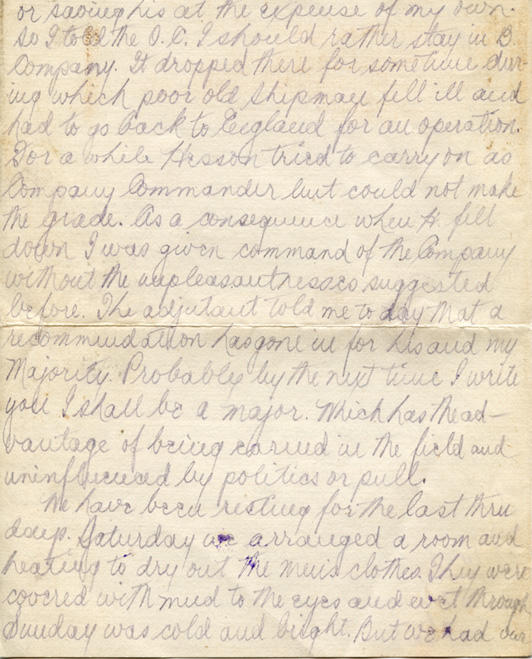 or saving his at the expense of my own.
So I told the O.C. I should rather stay in B.
Company. It dropped there for sometime dur-
ing which poor old Shipman fell ill and
had to go back to England for an operation.
For a while Hesson tried to carry on as
Company Commander but could not make
the grade. As a consequence when H fell
down I was given command of the Company
without the unpleasantnesses suggested
before. The adjutant told me to day that a
recommendation has gone in for his and my
Majority. Probably by the next time I write
you I shall be a major. Which has the ad-
vantage of being earned in the field and
uninfluenced by politics or pull.
We have been resting for the last three
days. Saturday we arranged a room and
heating to dry out the mens clothes. They were
covered with mud to the eyes and wet through
Sunday was cold and bright. But we had our